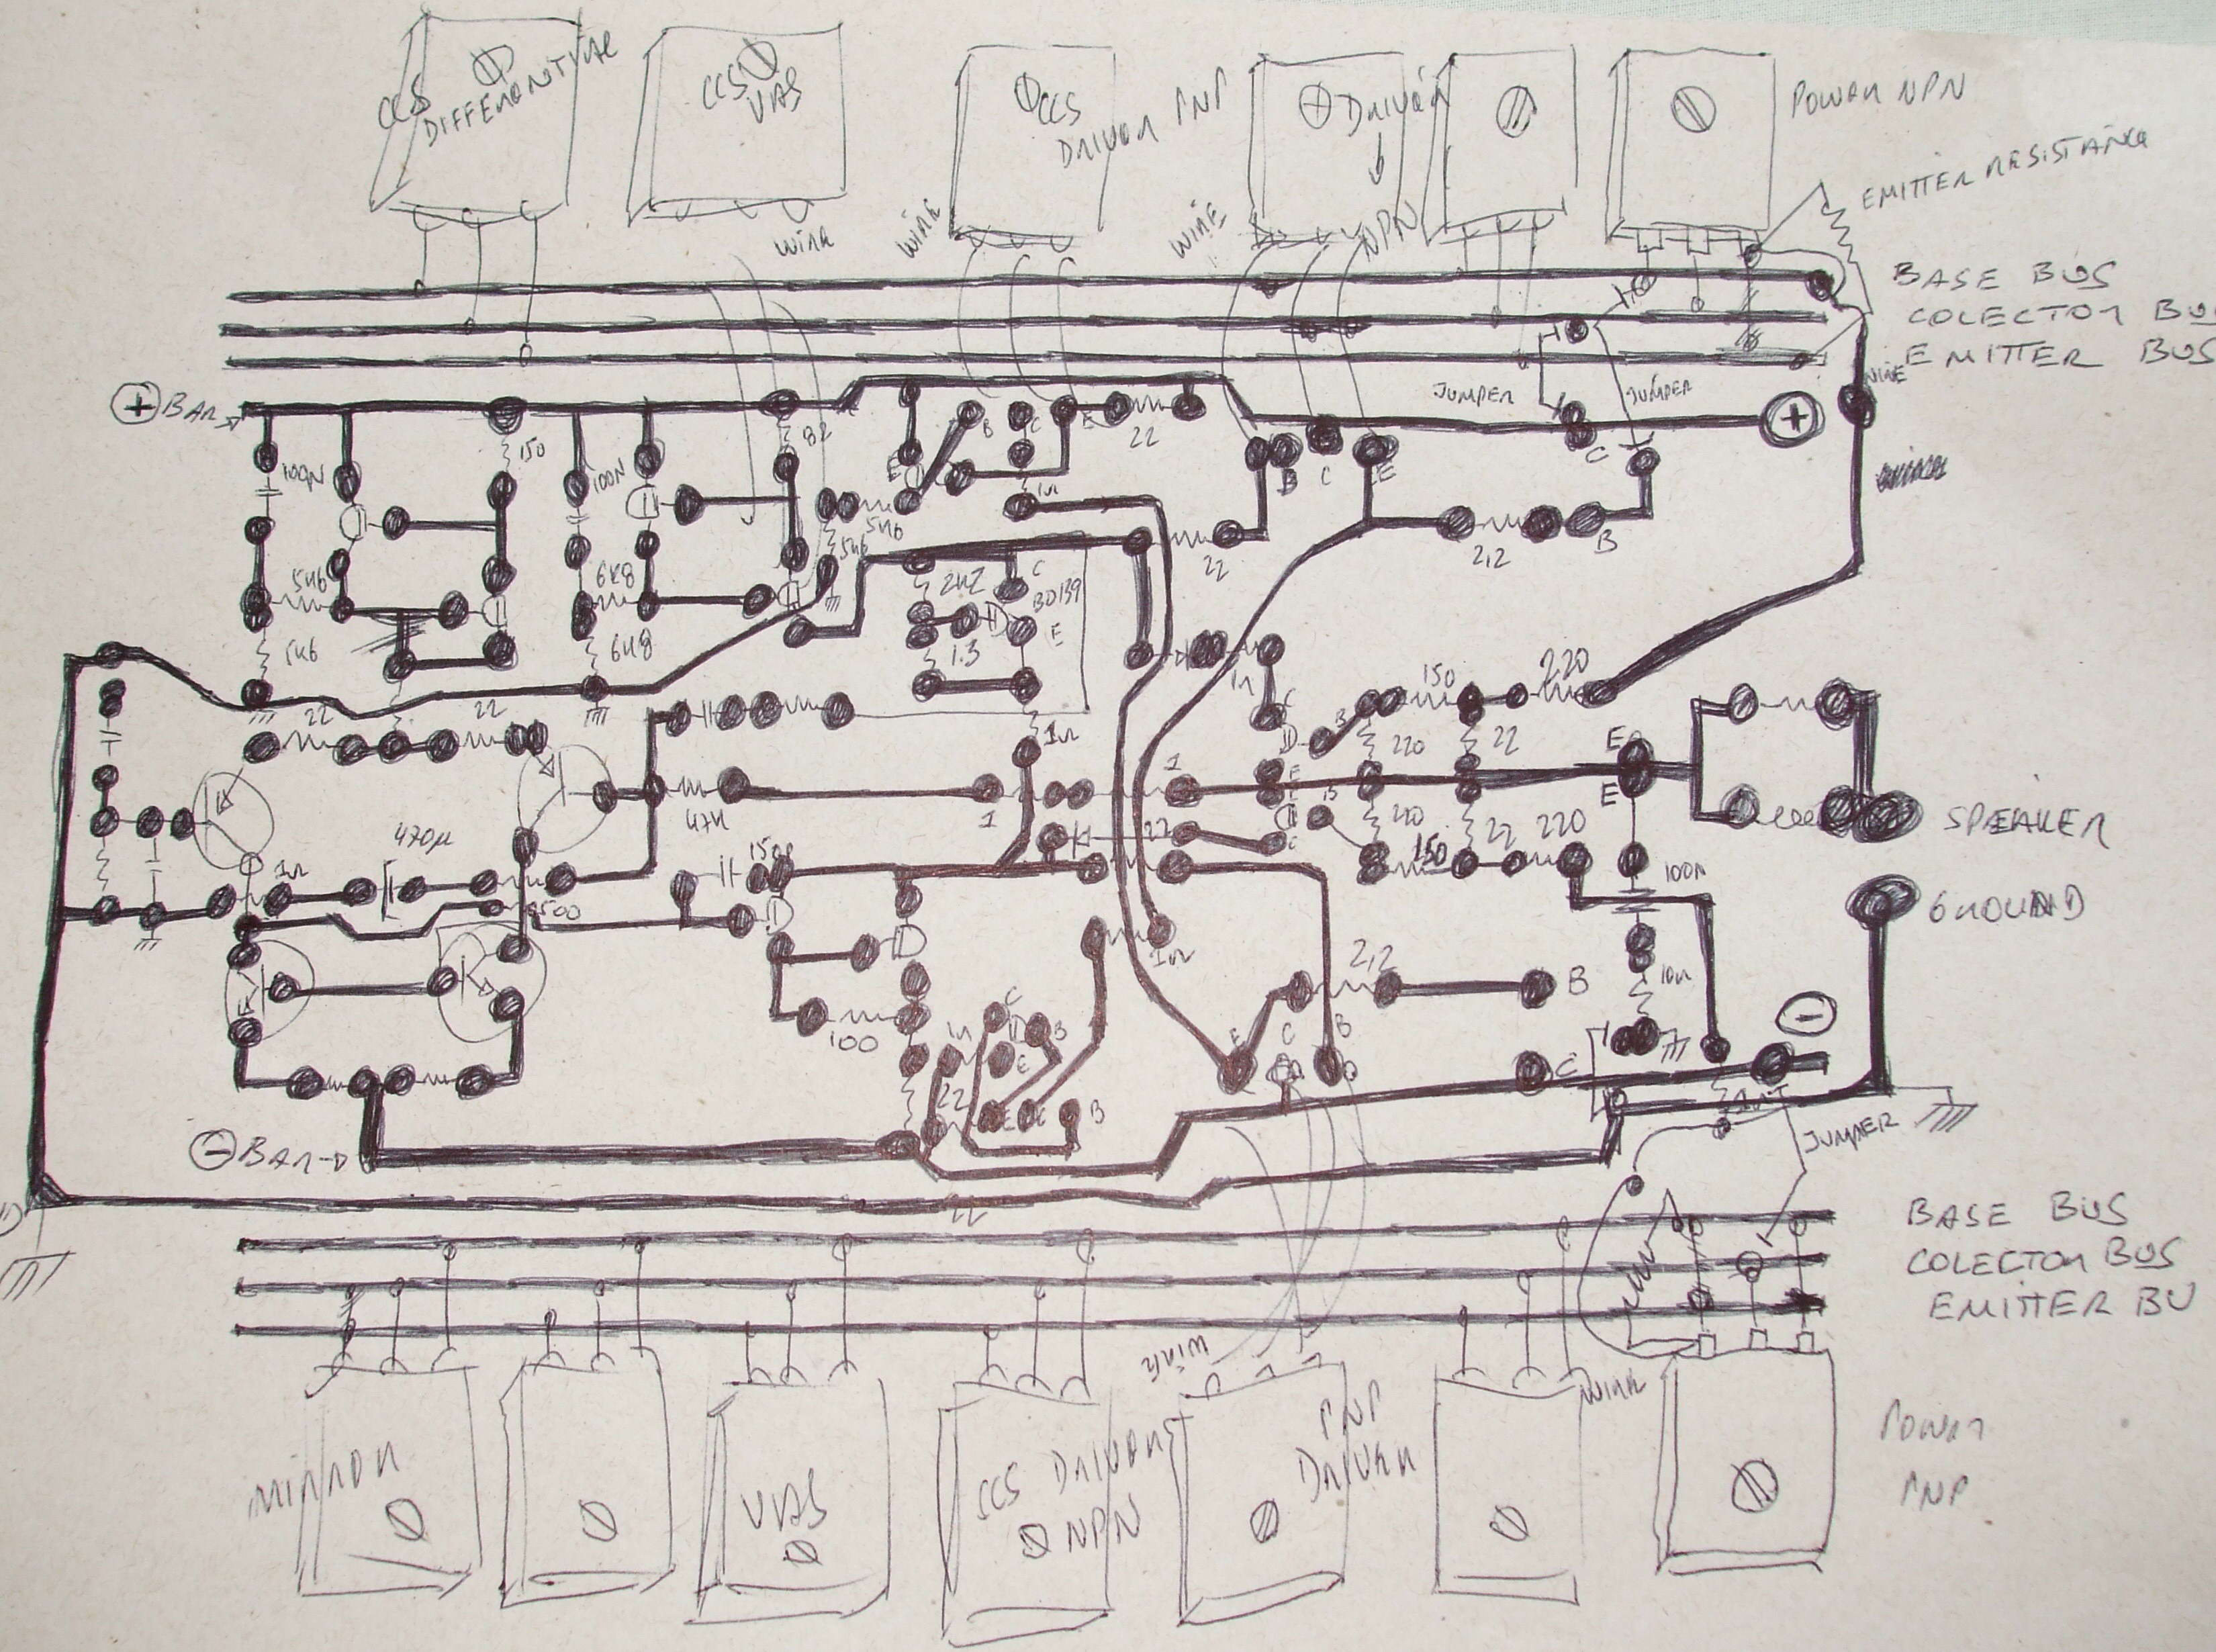 CCS
DIFFERANTIAL
CCS
VAS
CCS
DRIVER PNP
DRIVER
NPN
POWER NPN
EMITTER RESISTANCE
WIRE
WIRE
WIRE
BASE BUS
COLECTOR BUS
EMITTER BUS
WIRE
JUMPER
JUMPER
+ BAR
+
150
82
B
C
E
22
100N
100N
E
1n
5K6
5K6
B
C
E
C
22
2,2
B
5K6
6K8
2K2
C
BD139
E
5K6
6K8
1.3
1n
C
B
150
220
22
22
1n
220
22
E
E
47K
1
1
E
B
SPEAKER
470µ
1500
22
C
220
22
220
150
100n
1n
1500
GROUND
1n
2,2
B
10n
100
1n
C
B
E
E
C
B
C
-
22
E
C
B
- BAR
JUMPER
22
BASE BUS
COLECTOR BUS
EMITTER BU
WIRE
WIRE
MIRROR
VAS
CCS DRIVER
NPN
PNP
DRIVER
POWER
PNP